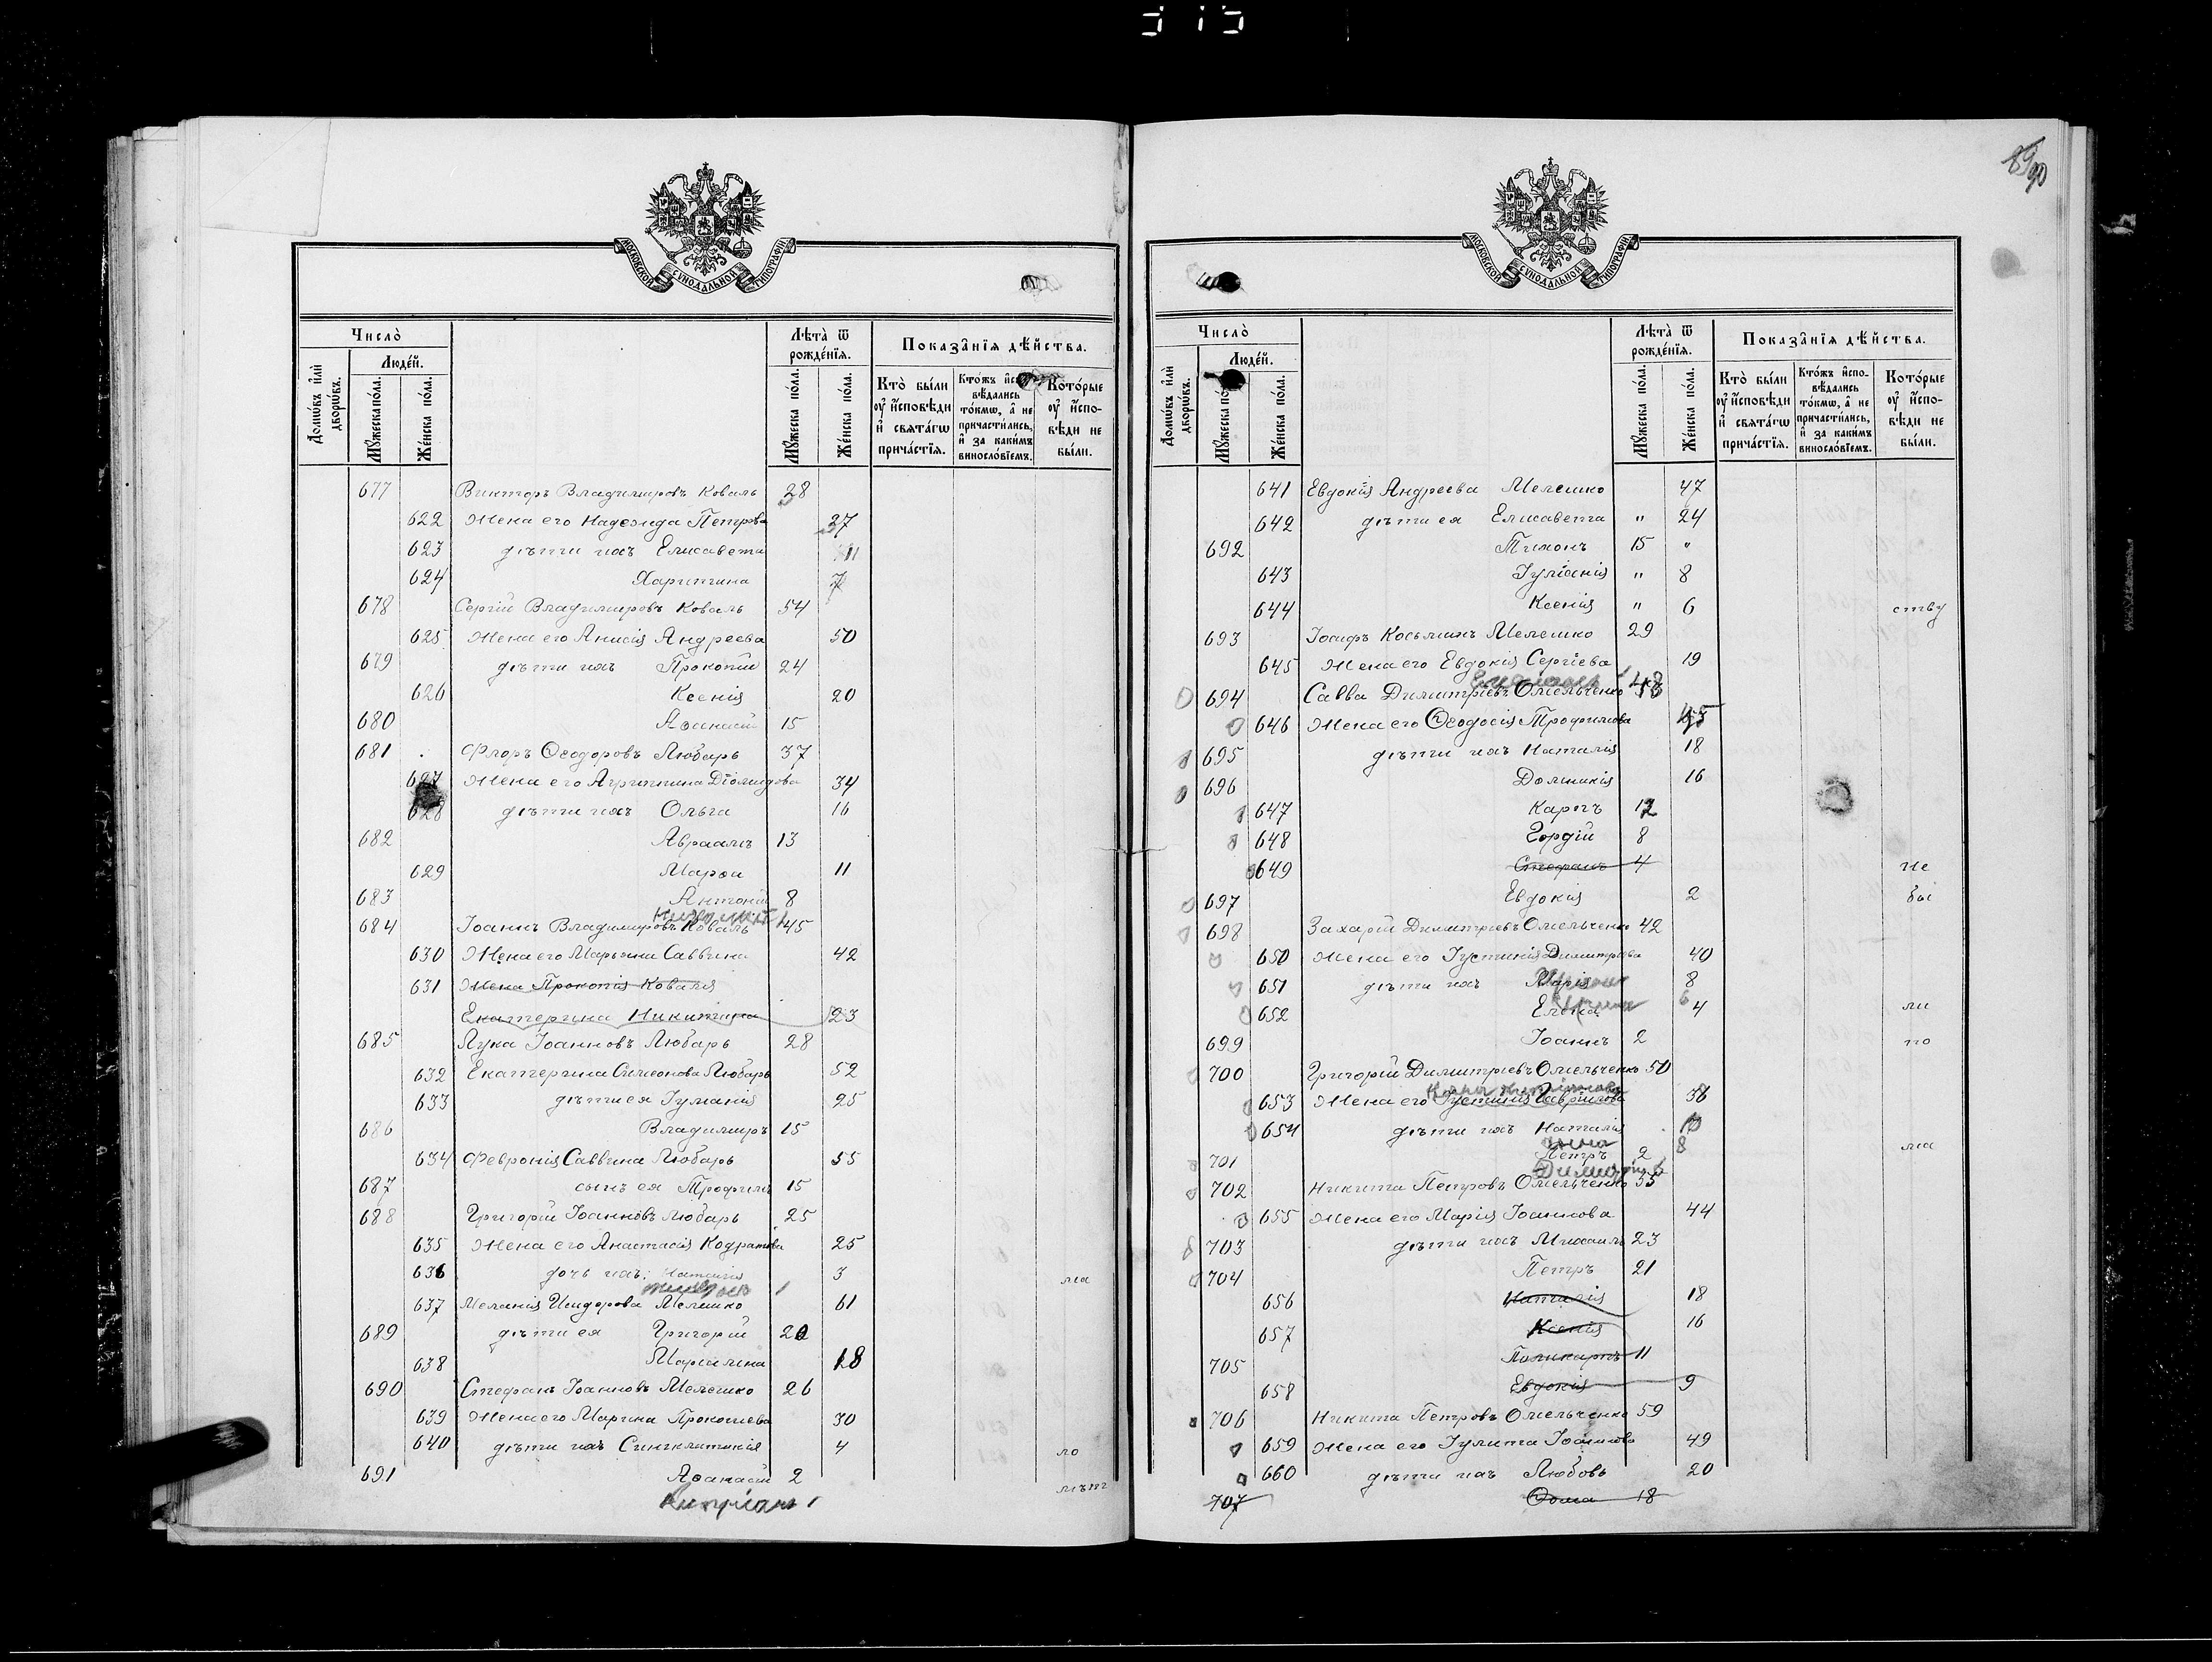 89 90
МОСКОВСКОЙ СѴНОДАЛЬНОЙ ТИПОГРАФІИ
Число̀
Людéй.
Домѡ́въ и҆лѝ дворѡ́въ.
Мꙋ́жеска по́ла.
Же́нска по́ла.
Лѣта̀ ѿ рожде́нїѧ.
Мꙋ́жеска по́ла.
Же́нска по́ла.
Показа̑нїѧ дѣ́йства.
Кто̀ бы́ли ᲂу҆ и҆сповѣди и҆ свѧта́гѡ прича́стїѧ.
Кто́жъ и҆сповѣ́дались то́кмѡ, а҆ не причасти́лись, и҆ за каки́мъ винословїемъ.
Кото́рые ᲂу҆ и҆сповѣди не бы́ли.
677 Викторъ Владимировъ Коваль 28
622 Жена его Надежда Петрова 27
623 дѣти ихъ Елисавета 11
624 Харитина 7
678 Сергій Владимировъ Коваль 54
625 Жена его Анисія Андреева 50
679 дѣти ихъ Прокопій 24
626 Ксенія 20
680 Аѳанасій 15
681 Флоръ Ѳеодоровъ Любарь 37
627 Жена его Агриппина Діомидова 34
628 дѣти ихъ Ольга 16
682 Авраамъ 13
629 Марѳа 11
683 Антоній 8
684 Іоаннъ Владимировъ Коваль 45
630 Жена его Марьяна Саввина 42
631 Жена Прокопія Коваля
Екатерина Никитина 23
685 Лука Іоанновъ Любарь 28
632 Екатерина Симеонова Любарь 52
633 дѣти ея Іуліанія 25
686 Владимиръ 15
634 Февронія Саввина Любарь 55
687 сынъ ея Трофимъ 15
688 Григорій Іоанновъ Любарь 25
635 Жена его Анастасія Кодратова 25
636 дочь ихъ: Наталія 3 ма
637 Меланія Исидорова Мелешко 61
689 дѣти ея Григорій 20
638 Маріамна 18
690 Стефанъ Іоанновъ Мелешко 26
639 Жена его Марина Прокопіева 30
640 дѣти ихъ Синклитикія 4 ло
691 Аѳанасій 2 лѣт
Кипріанъ 1
МОСКОВСКОЙ СѴНОДАЛЬНОЙ ТИПОГРАФІИ
Число̀
Людéй.
Домѡ́въ и҆лѝ дворѡ́въ.
Мꙋ́жеска по́ла.
Же́нска по́ла.
Лѣта̀ ѿ рожде́нїѧ.
Мꙋ́жеска по́ла.
Же́нска по́ла.
Показа̑нїѧ дѣ́йства.
Кто̀ бы́ли ᲂу҆ и҆сповѣди и҆ свѧта́гѡ прича́стїѧ.
Кто́жъ и҆сповѣ́дались то́кмѡ, а҆ не причасти́лись, и҆ за каки́мъ винословїемъ.
Кото́рые ᲂу҆ и҆сповѣди не бы́ли.
641 Евдокія Андреева Мелешко 47
642 дѣти ея Елисавета " 24
692 Тимонъ 15 "
643 Іуліанія " 8
644 Ксенія " 6 ству
693 Іосифъ Косьминъ Мелешко 29
645 Жена его Евдокія Сергіева 19
694 Савва Димитріевъ Омельченко 48
646 Жена его Ѳеодосія Трофимова 45
695 дѣти ихъ Наталія 18
696 Домникія 16
647 Карпъ 12
648 Гордій 8
649 Стефанъ 4 Не
697 Евдокія 2 бы
698 Захарій Димитріевъ Омельченко 42
650 Жена его Іустинія Димитріева 40
651 дѣти ихъ Марія 8
652 Елена 4 ли
699 Іоаннъ 2 по
700 Григорій Димитріевъ Омельченко 50
653 Жена его Іустинія Гавріилова 36
654 дѣти ихъ Наталія 10
701 Петръ 2 8 ма
Димитрій
702 Никита Петровъ Омельченко 55
655 Жена его Марія Іоаннова 44
703 дѣти ихъ Михаилъ 23
704 Петръ 21
656 Наталія 18
657 Ксенія 16
705 Поликарпъ 11
658 Евдокія 9
706 Никита Петровъ Омельченко 59
659 Жена его Іулита Іоаннова 49
660 дѣти ихъ Любовь 20
707 Ѳома 18